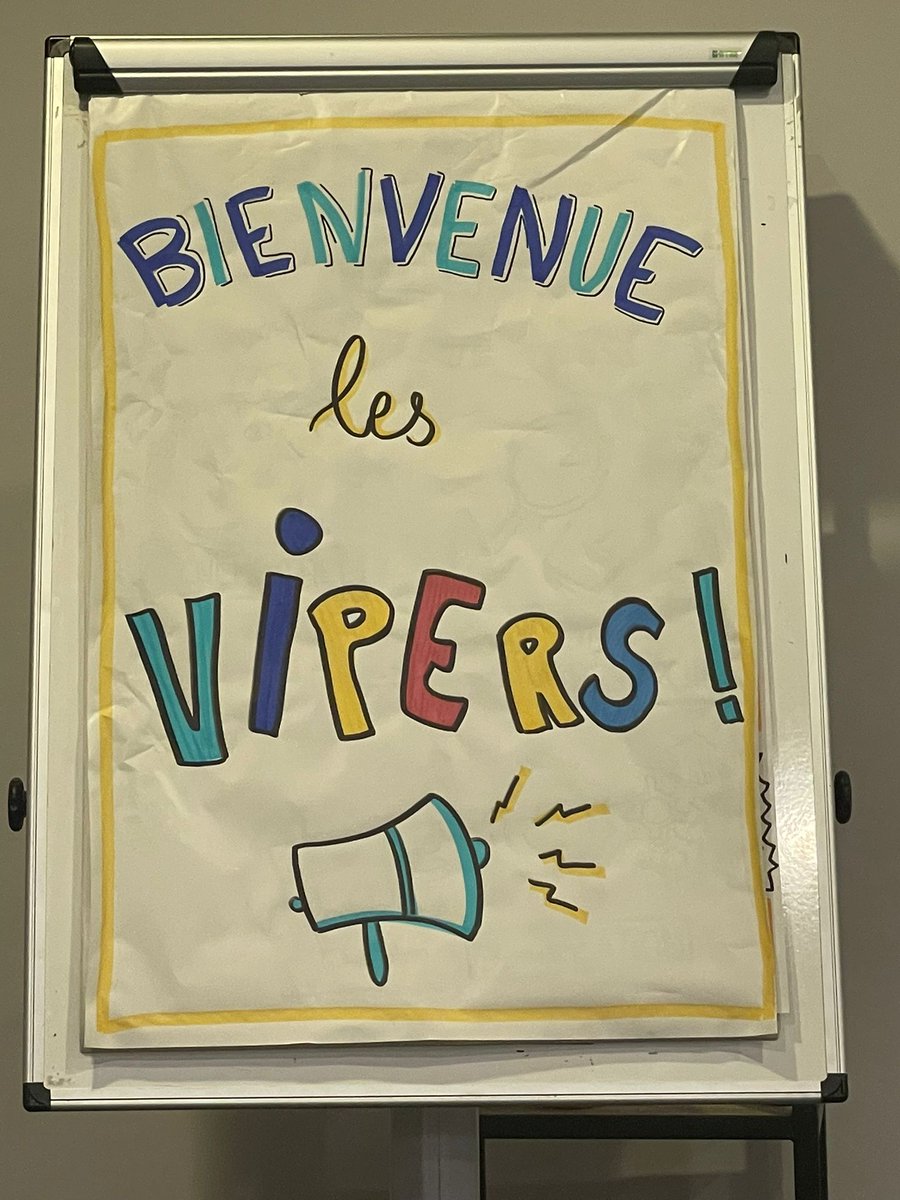 BIENVENUE
les
ViPERS!